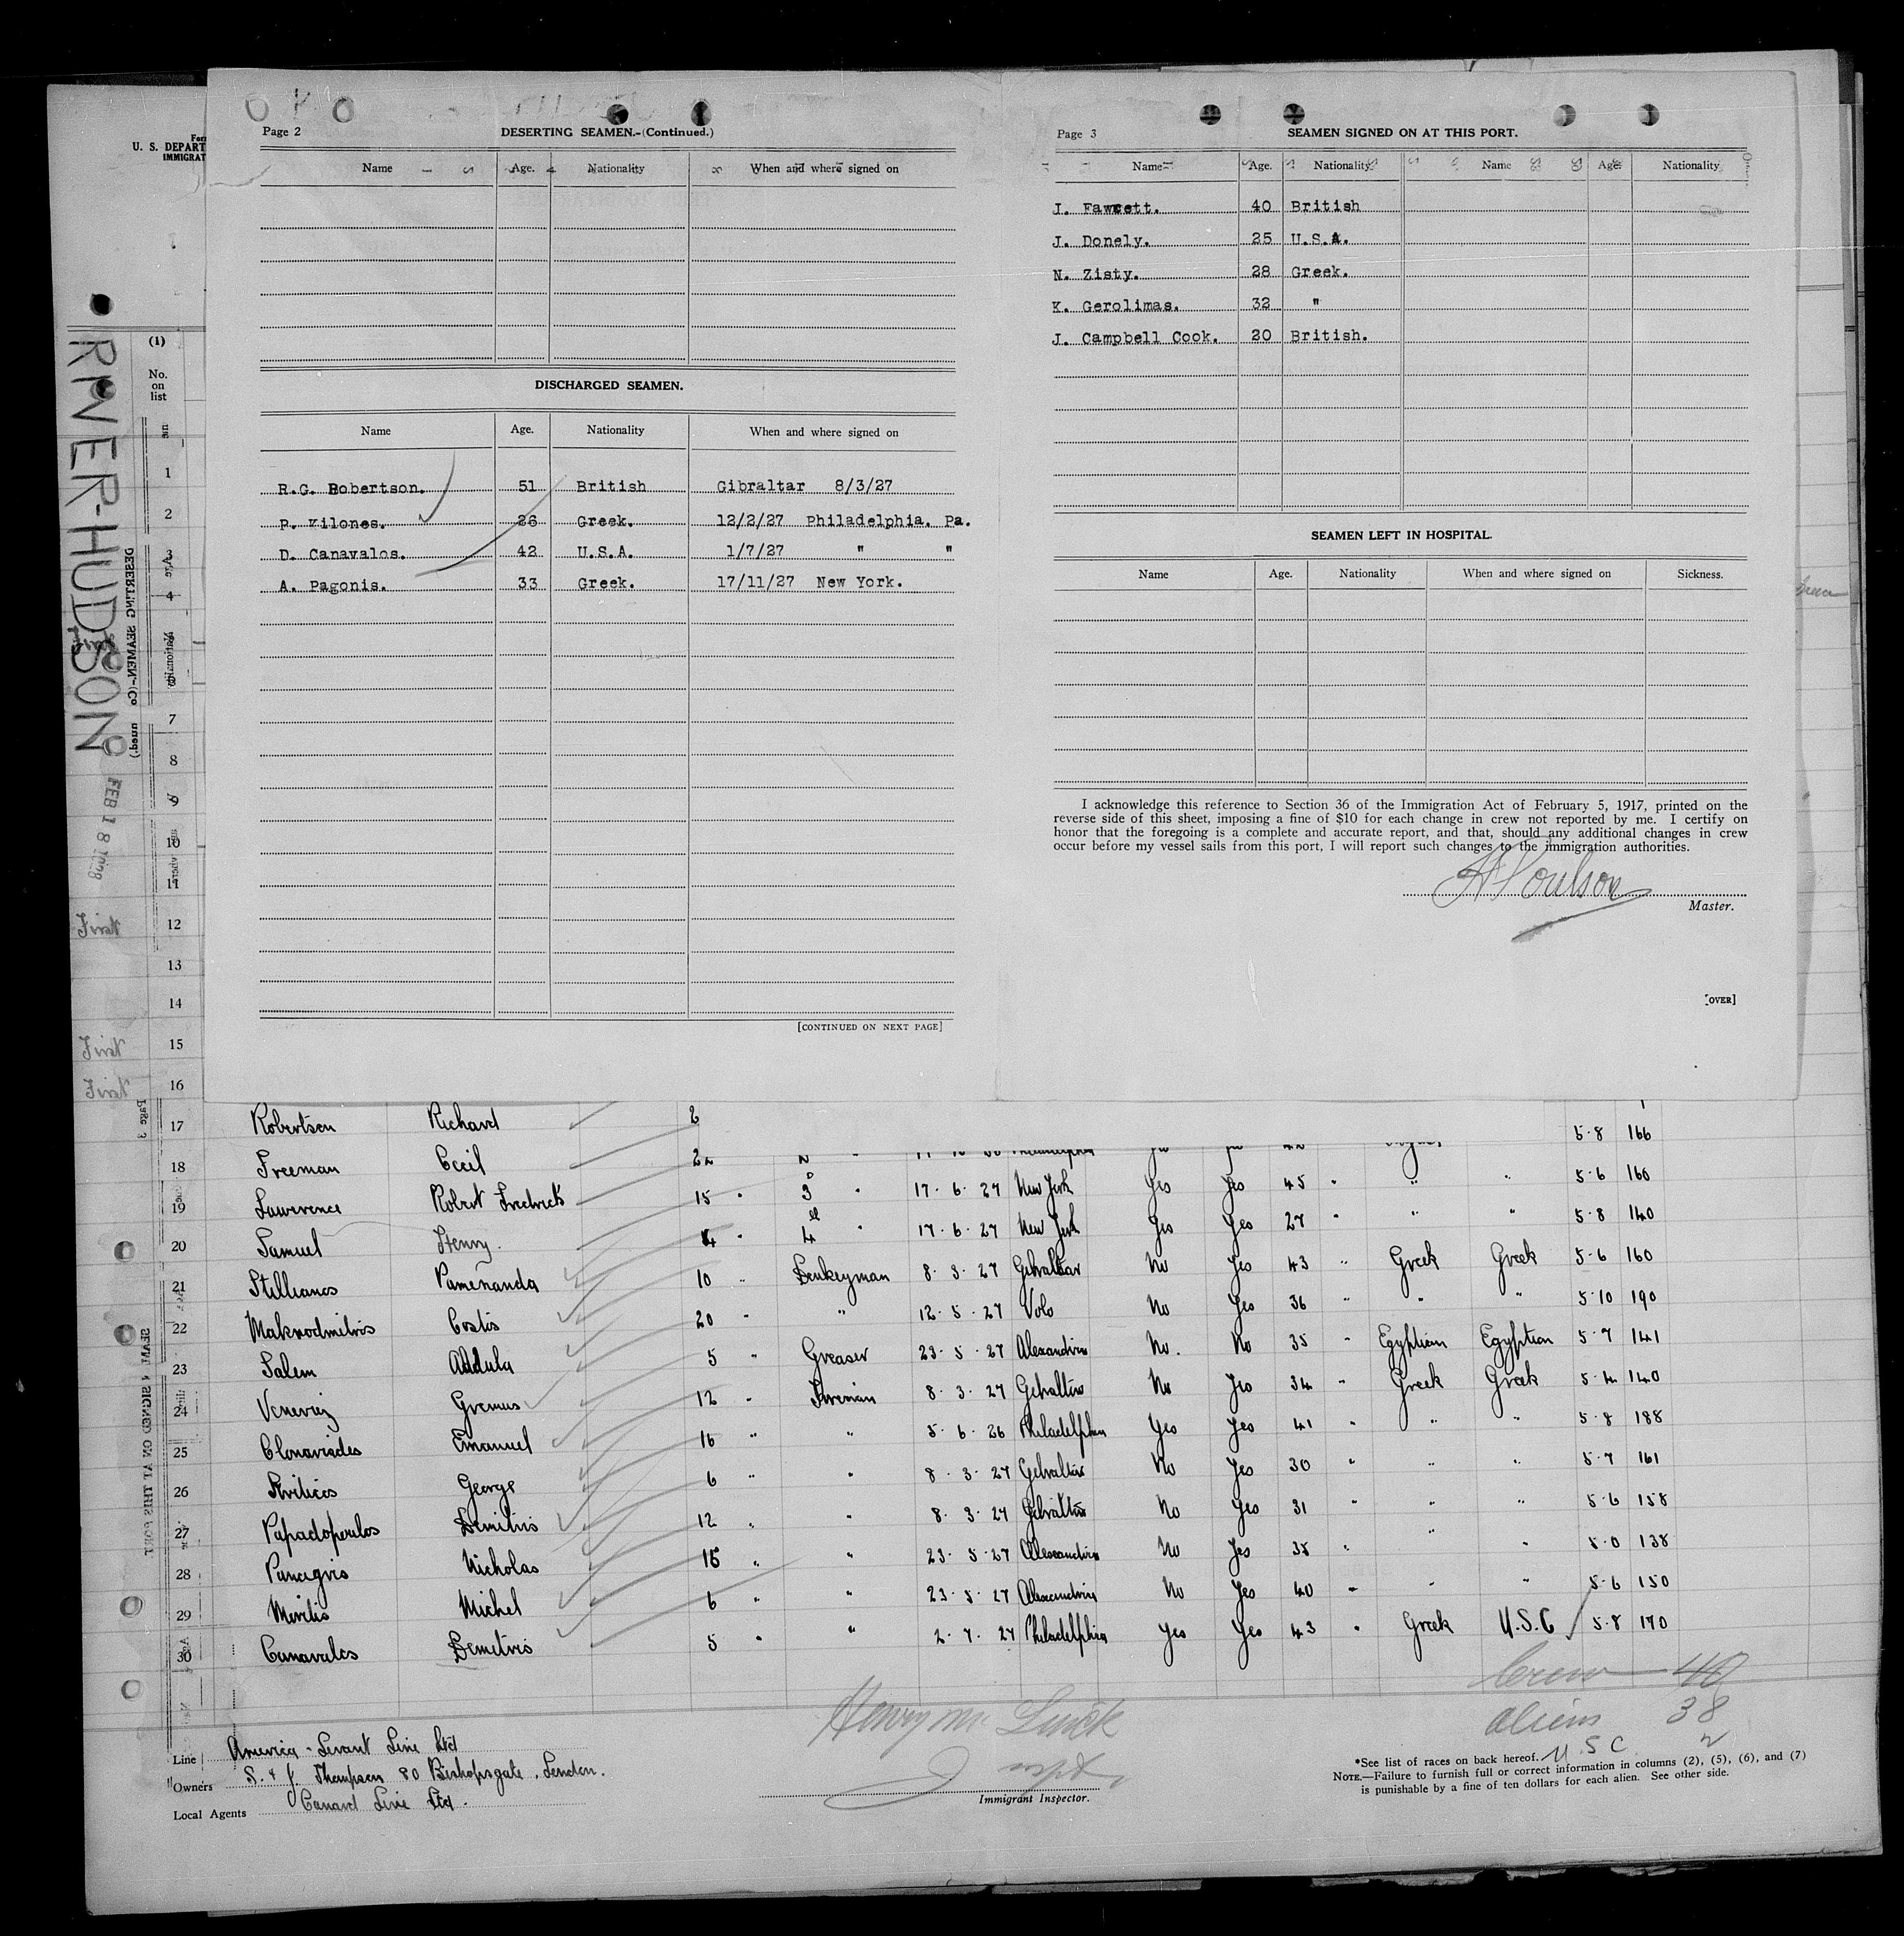 Page 2
DESERTING SEAMEN.-(Continued.)
Name Age. Nationality When and where signed on
DISCHARGED SEAMEN.
Name Age. Nationality When and where signed on
R.G. Robertson. 51 British Gibraltar 8/3/27
P. Kilones. 26 Greek. 12/2/27 Philadelphia. Pa.
D. Canavalos. 42 U.S.A. 1/7/27 " "
A. Pagonis. 33 Greek. 17/11/27 New York.
[CONTINUED ON NEXT PAGE]
Page 3
SEAMEN SIGNED ON AT THIS PORT.
Name Age. Nationality Name Age. Nationality
J. Fawcett. 40 British
J. Donely. 25 U.S.A.
N. Zisty. 28 Greek.
K. Gerolimas. 32 "
J. Campbell Cook. 20 British.
SEAMEN LEFT IN HOSPITAL.
Name Age. Nationality When and where signed on Sickness.
I acknowledge this reference to Section 36 of the Immigration Act of February 5, 1917, printed on the
reverse side of this sheet, imposing a fine of $10 for each change in crew not reported by me. I certify on
honor that the foregoing is a complete and accurate report, and that, should any additional changes in crew
occur before my vessel sails from this port, I will report such changes to the immigration authorities.
Master.
[OVER]
U. S. DEPART
IMMIGRAT
RIVER-HUDSON
FEB 18 1928
(1)
No.
on
list
1
2
3
4
7
8
9
10
11
First 12
13
14
First 15
First 16
17 Robertson Richard 2 5-8 166
18 Freeman Cecil 22 5-6 160
19 Lawerence Robert Fredrick 15 " 3 " 17-6-27 New York Yes Yes 45 " " " 5-8 140
20 Samuel Henry. 4 " 4 " 17-6-27 New York Yes Yes 27 " " "
21 Stillianos Pamenanda 10 " Donkeyman 8-3-27 Gibraltar No Yes 43 " Greek Greek 5-6 160
22 Makrodmitris Costis 20 " " 12-5-27 Volo No Yes 36 " " " 5-10 190
23 Salem Abdula 5 " Greaser 23-5-27 Alexandria No. No 35 " Egyptian Egyptian 5-7 141
24 Gremus 12 " Fireman 8-3-27 Gibraltar No Yes 34 " Greek Greek 5-4 140
25 Clonariades Emanuel 16 " " 5-6-26 Philadelphia Yes Yes 41 " " " 5-8 188
26 George 6 " " 8-3-27 Gibraltar No Yes 30 " " " 5-7 161
27 Papadopoulos Demitris 12 " " 8-3-27 Gibraltar No Yes 31 " " " 5-6 158
28 Panagris Nicholas 15 " " 23-5-27 Alexandria No Yes 38 " " " 5-0 138
29 Michel 6 " " 23-5-27 Alexandria No Yes 40 " " " 5-6 150
30 Canavalos Demitris 5 " " 2-7-27 Philadelphia Yes Yes 43 " Greek U.S.C 5-8 170
Crew 40
Aliens 38
U.S.C 2
Line America-Levant Line Ltd
Owners S. & J. Thompson 80 Bishopsgate, London.
Local Agents Cunard Line Ltd.
Immigrant Inspector.
*See list of races on back hereof.
NOTE.—Failure to furnish full or correct information in columns (2), (5), (6), and (7)
is punishable by a fine of ten dollars for each alien. See other side.